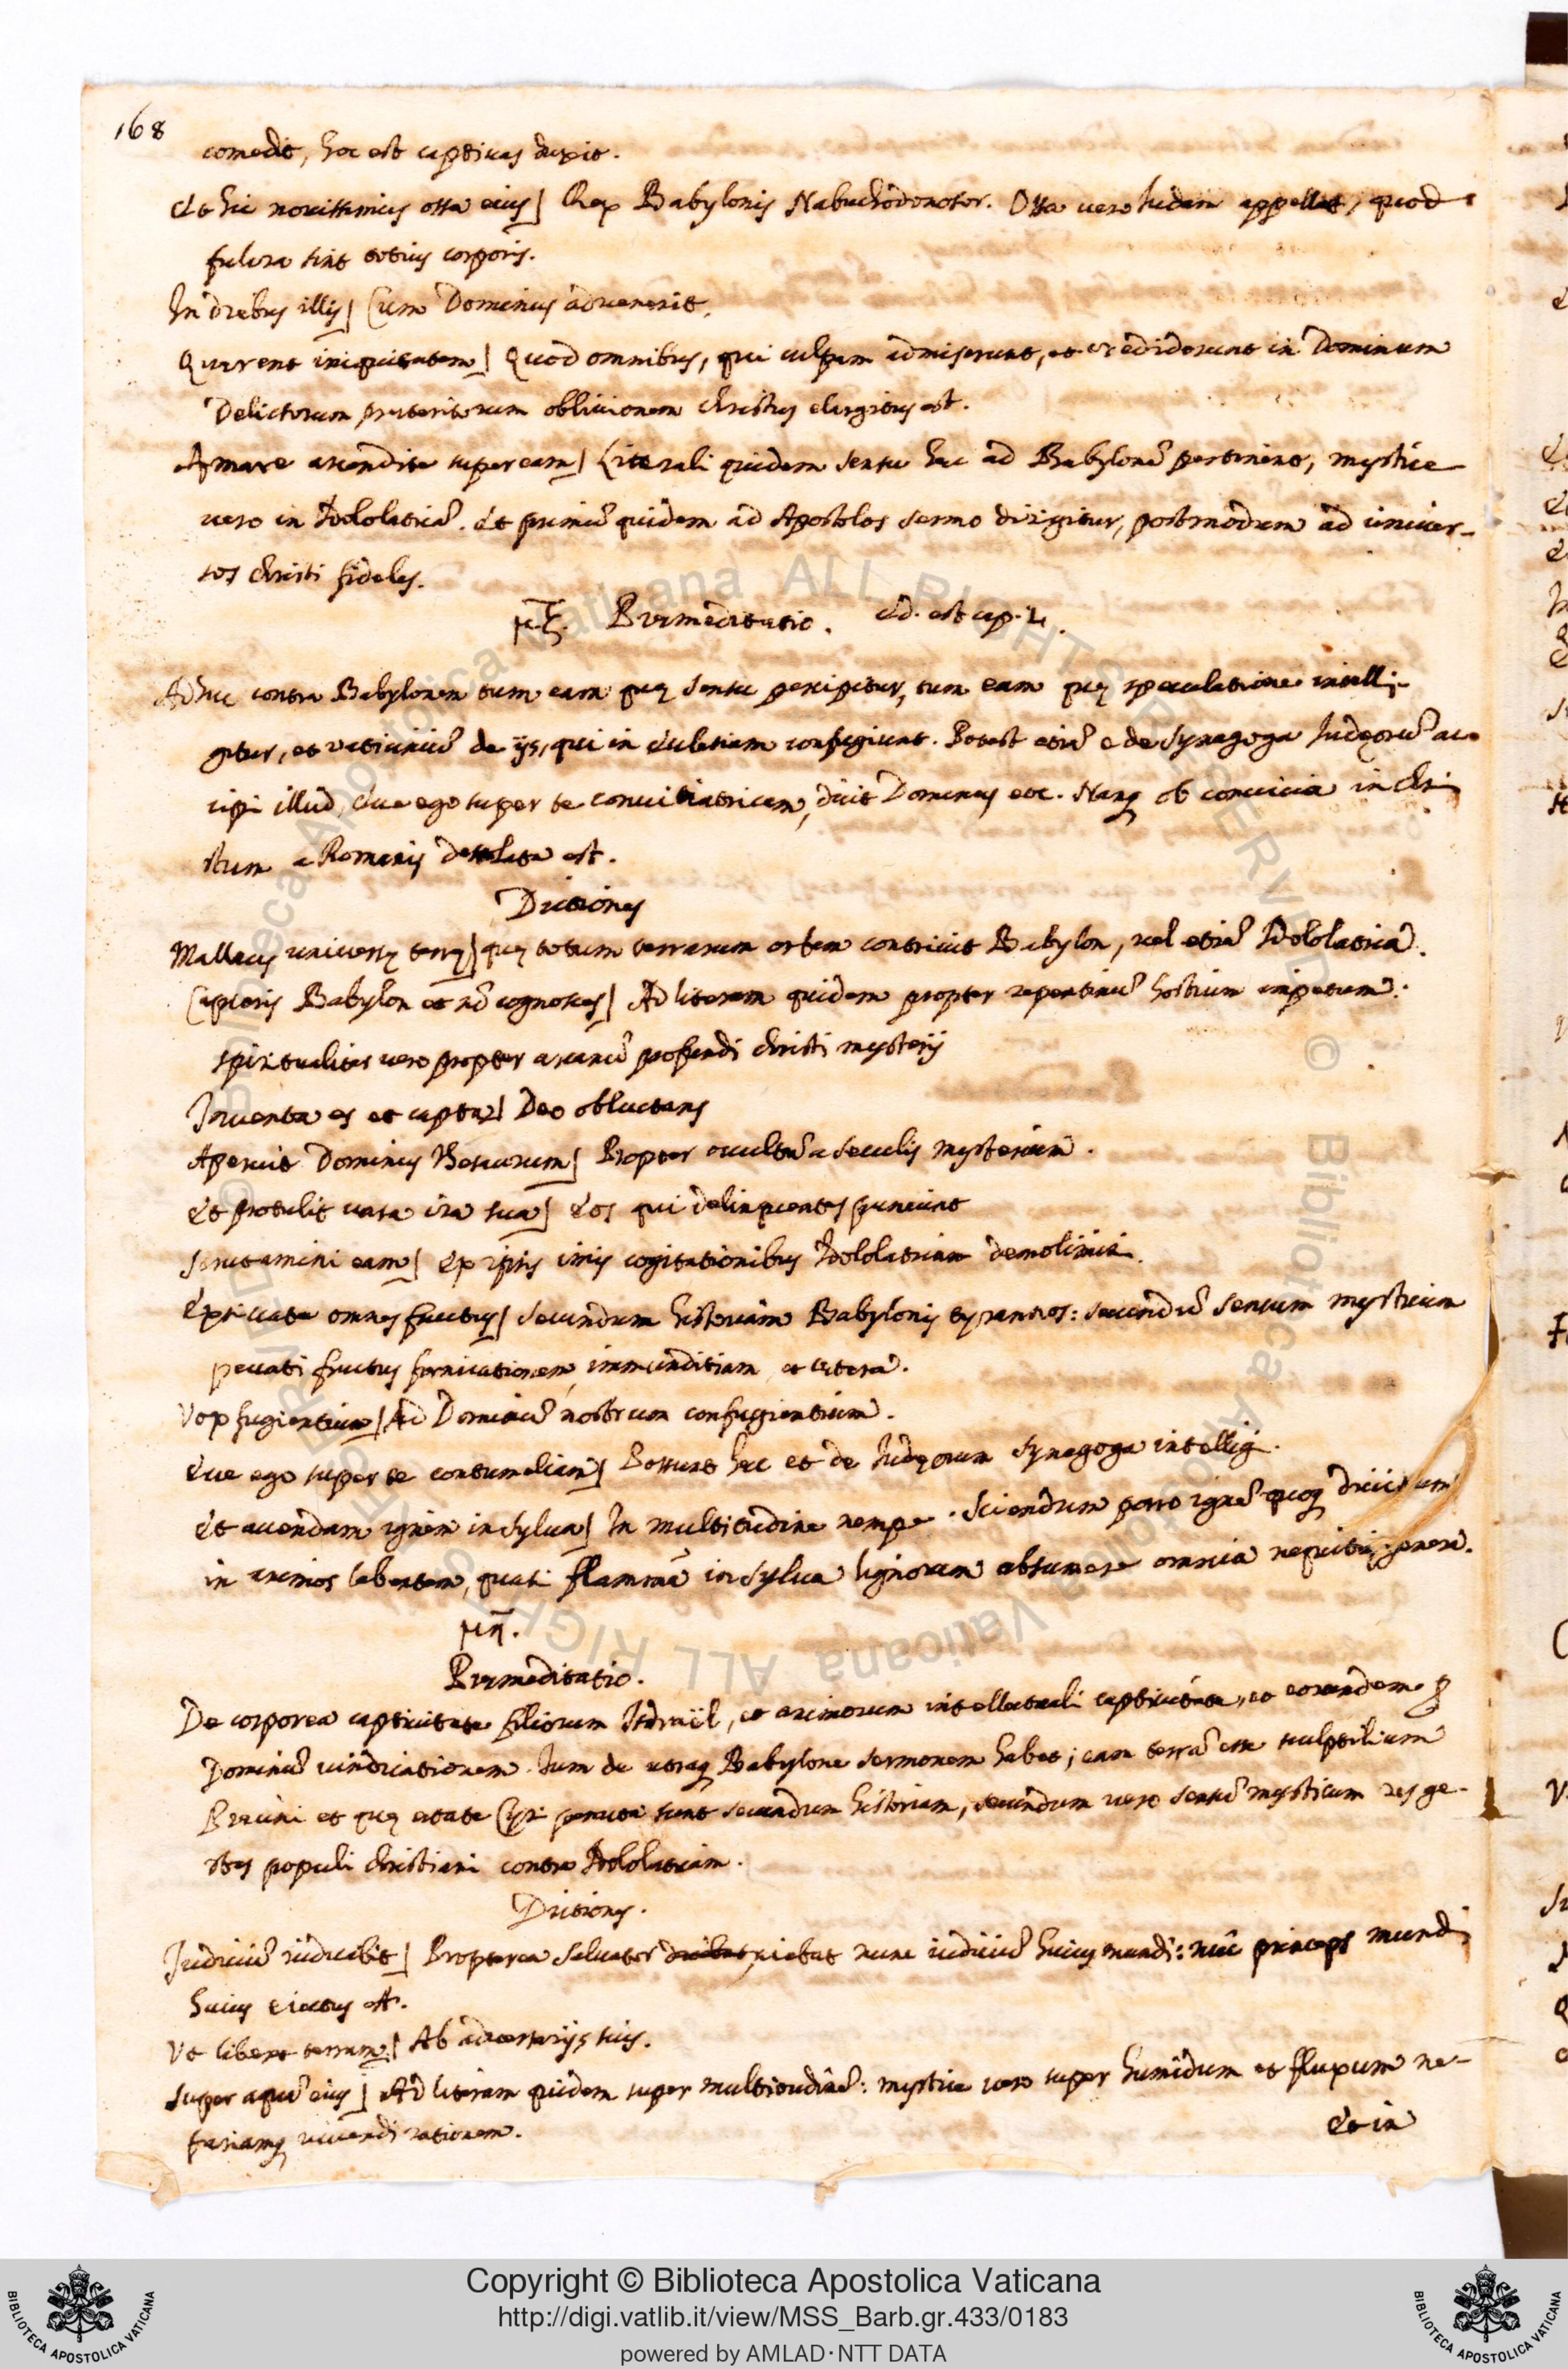 168
comedit, hoc est captivas duxit.
Et hic novissimus ossa eius] Rex Babylonis Nabuchodonosor. Ossa vero Iudam appellat, quod
fulcra sint totius corporis.
In diebus illis] Cum Dominus advenerit.
Quærent iniquitatem] Quod omnibus, qui culpam admiserunt, et crediderunt in Dominum
Delictorum præteritorum oblivionem Christus elargitus est.
Amare ascendite super eam] Literali quidem sensu hæc ad Babylonē pertinent, mystice
vero in Idololatriā. Et primū quidem ad Apostolos sermo dirigitur, postmodum ad univer-
sos Christi fideles.
μζ. Præmeditatio. id. est cap. L.
Adhuc contra Babylonem tum eam quę sensu percipitur, tum eam quę speculatione intelli-
gitur, et vaticiniū de ijs, qui in Ecclesiam confugiunt. Potest etiā e de Synagoga Iudęorū ac-
cipi illud, Ecce ego super te convitiatricem, dicit Dominus etc. Namq ob convicia in Chri-
stum a Romanis desolata est.
Dictiones
Malleus universę terrę] quę totum terrarum orbem contrivit Babylon, vel etiā Idololatria.
Capieris Babylon et nō cognosces] Ad literam quidem propter repentinū hostium impetum:
spiritualiter vero propter arcanū profundi Christi mysterij
Inventa es et capta] Deo obluctans
Aperuit Dominus Thesaurum] Propter occultū a seculis mysterium.
Et protulit vasa iræ suæ] Eos qui delinquentes puniunt
Scrutamini eam] Ex ipsis imis cogitationibus Idololatriam demolimini.
Exsiccate omnes fructus] Secundum historiam Babylonis tyrannos: secundū sensum mysticum
peccati fructus fornicationem, immunditiam, et cætera.
Vox fugientium] Ad Dominū nostrum confugientium.
Ecce ego super te contumeliam] Possunt hæc et de Iudęorum Synagoga intelligi.
Et accendam ignem in sylva] In multitudine nempe. Sciendum porro ignē quoq divinum
in animos labentem, quasi flammā in sylva lignorum absumere omnia nequitię genera.
μη.
Præmeditatio.
De corporea captivitate filiorum Isdraël, et animorum intellectuali captivitate, et eorundem ꝑ
Dominū vindicationem. Tum de utraq Babylone sermonem habet; eam terrā esse sculptilium
Præcini et quę ætate Cyri peracta sunt secundum historiam, secundum vero sensū mysticum res ge-
stas populi Christiani contra Idololatriam.
Dictiones.
Iudiciū iudicabit] Propterea Salvator dicebat nunc iudiciū huius mundi: nūc princeps mundi
huius eiectus est.
Ut liberet terram] Ab adversarijs suis.
Super aquā eius] Ad literam quidem super multitudinē: mystice vero super humidum et fluxum ne-
fariamq vivendi rationem.
Et in
Copyright © Biblioteca Apostolica Vaticana
http://digi.vatlib.it/view/MSS_Barb.gr.433/0183
powered by AMLAD·NTT DATA